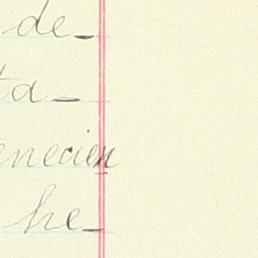 de_
ta_
enecien
he_